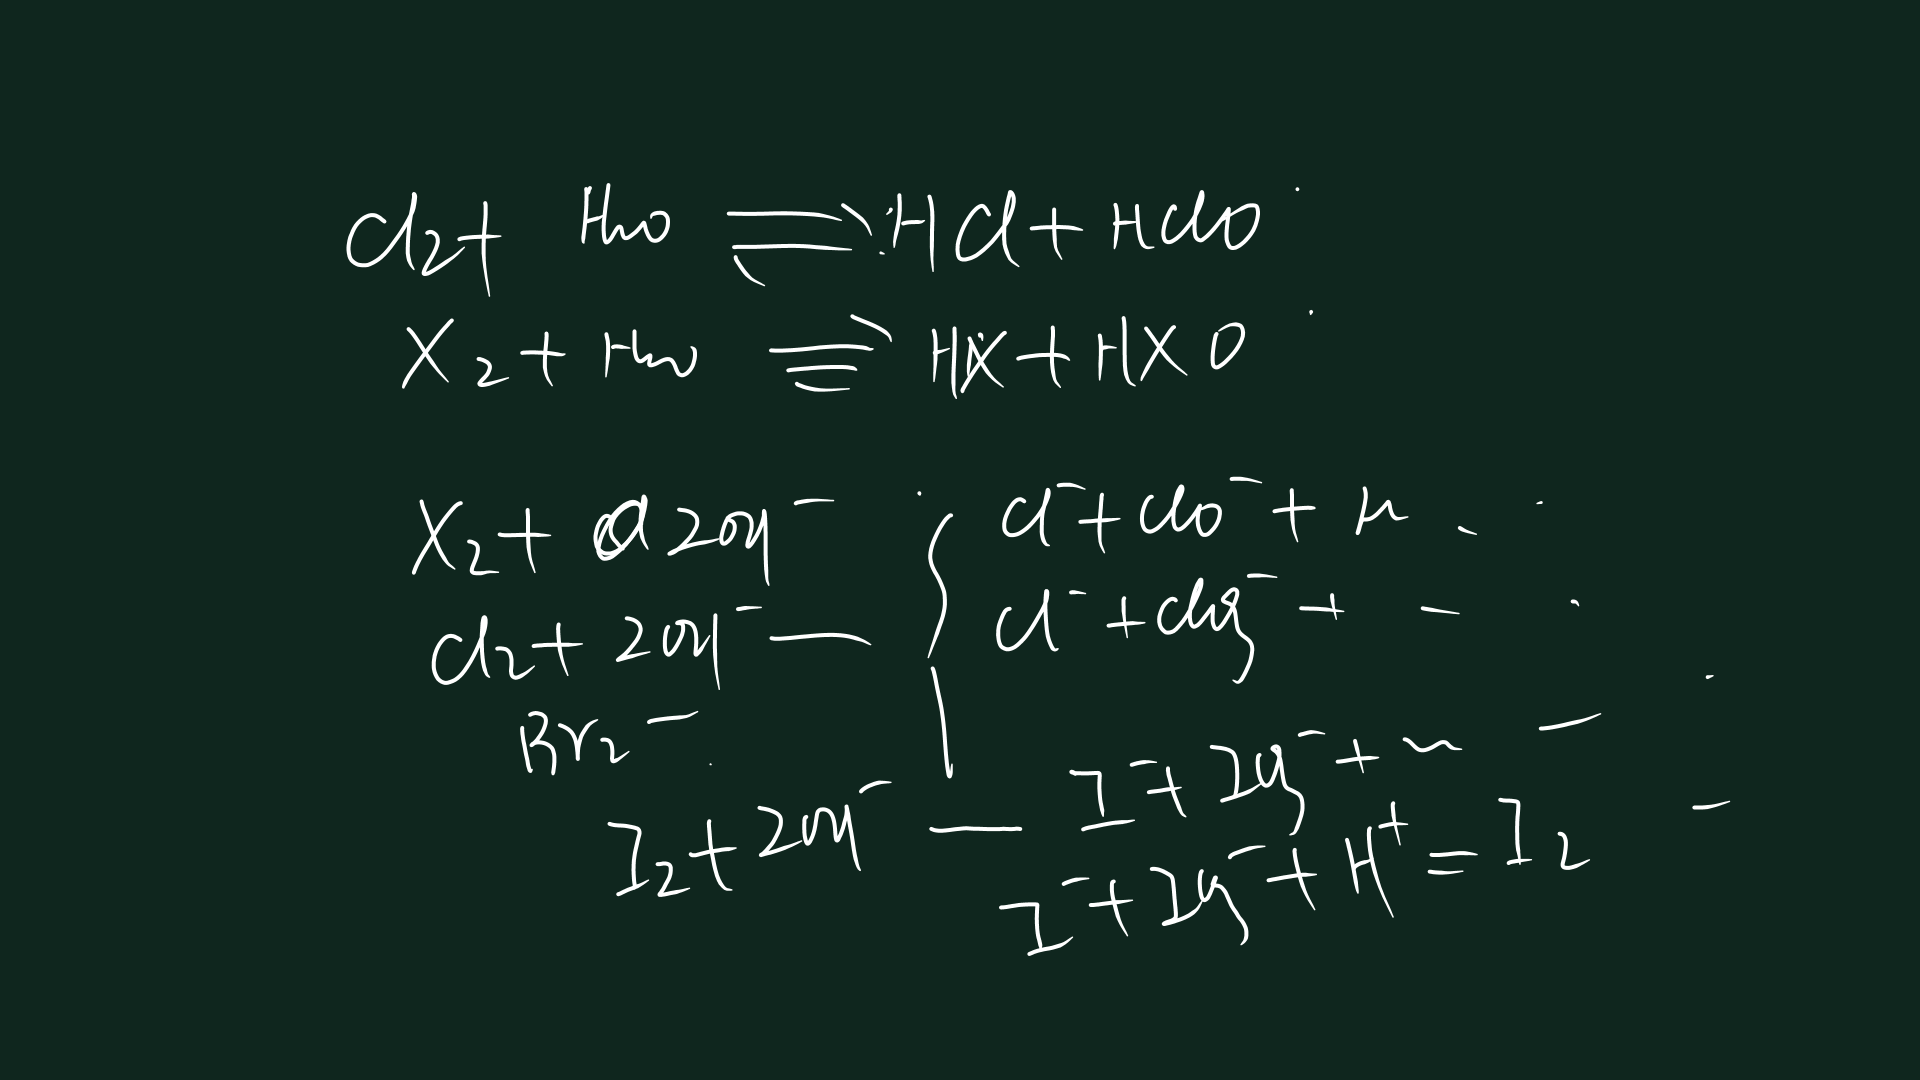 Cl₂ + H₂O ⇌ HCl + HClO
X₂ + H₂O ⇌ HX + HXO
X₂ + 2OH⁻
Cl⁻ + ClO⁻ +
Cl₂ + 2OH⁻ —
Cl⁻ + ClO₃⁻ +
Br₂
I₂ + 2OH⁻ — I⁻ + IO₃⁻ +
I⁻ + IO₃⁻ + H⁺ = I₂